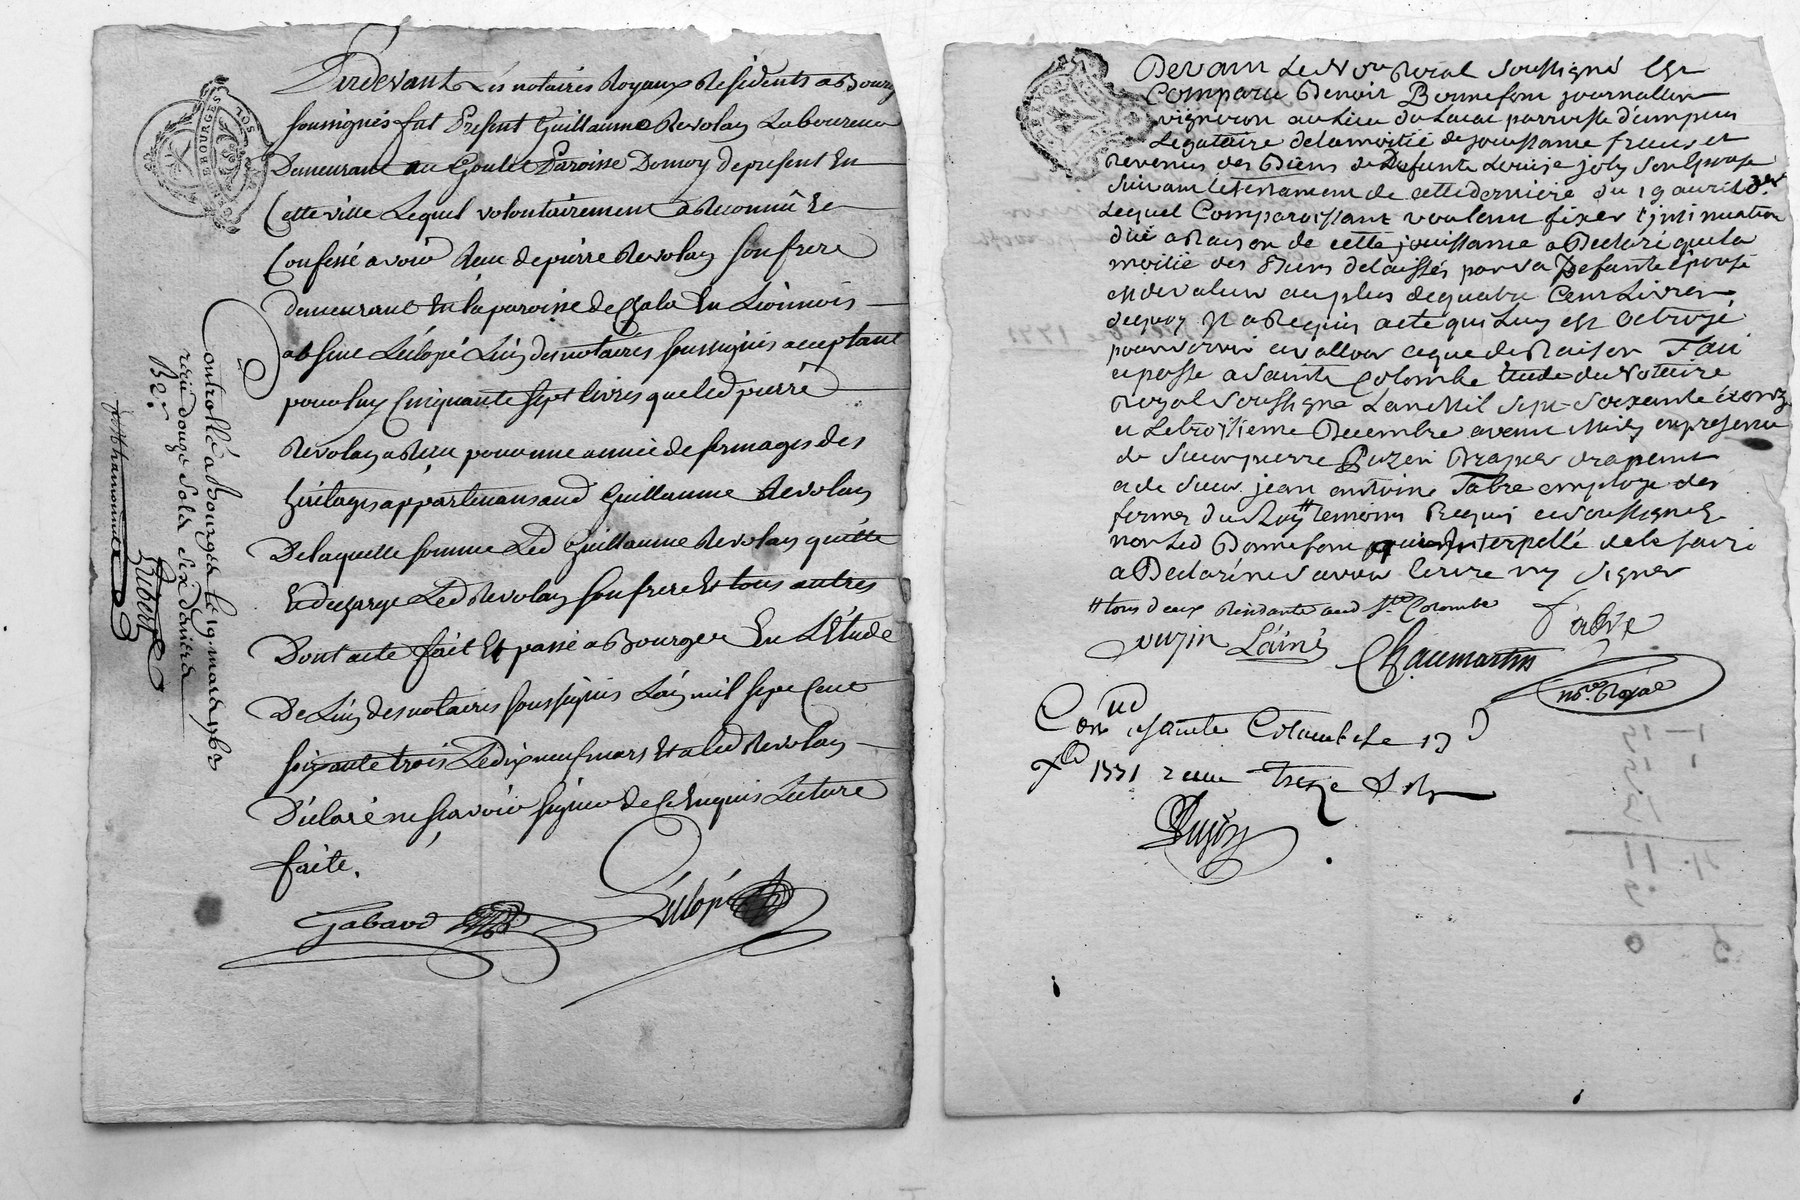 Pardevant Les notaires Royaux Residents a Bourg
soussignés fut Present Guillaume Revolay Laboureur
Demeurant au Goulet Paroisse Domoy de present En
Cette ville Lequel volontairement a Reconnû Et
Confessé avoir Reu de pierre Revolay son frere
demeurant En la paroisse de Chala En Lionnois
absent Léclopé L'un des notaires soussignés acceptant
pour luy Cinquante sept livres que led pierre
Revolay a Reu pour une année de fermages des
héritages appartenans aud Guillaume Revolay
De laquelle somme Led Guillaume Revolay quitte
Et decharge Led Revolay son frere Et tous autres
Dont acte fait Et passé a Bourges En L'Etude
De L'un des notaires soussignés L'an mil sept Cent
soixante trois Le dix neuf mars Et a led Revolay
Déclaré ne sçavoir signer de Ce Enquis Lecture
faite.
Gabard
Léclopé
Controllé a Bourges le 19 mars 1763
reçu douze sols six deniers
Rubert
GEN DE BOURGES
SOL
Devant Le Nre Roial soussigné Est
Comparu Benoit Bonnefont journallier
vigneron au Lieu du Lacat parroisse d'empuis
Légataire de la moitié de jouissance fruits et
revenus des Biens de Defunte Louise joly son Epouse
suivant le testament de cette derniere du 19 avril der
Lequel Comparoissant voulant fixer l'jnsinuation
due a Raison de cette jouissance a Declaré que la
moitié des Biens delaissés par sa Defunte épouse
est de valeur au plus de quatre Cent Livres
dequoy Il a Requis acte qui Luy est octroyé
pour servir et valloir ce que de Raison Fait
et passé a Sainte Colombe Etude du Notaire
Royal soussigné L'an Mil sept soixante et onze
et Le troisieme Decembre avant Midy en presence
de Sieur pierre Buzin Drapier drapant
et de Sieur jean antoine Fabre employé des
fermes du Roy # temoins Requis et soussignés
non Led Bonnefont pour interpellé de le faire
a Declaré ne savoir Ecrire ny signer
# tous deux Residants aud Ste Colombe
Buzin L'ainé
Fabre
Chaumartin
nre Royal
Con ud Sainte Colombe le 13
xbre 1771 receu Treize sols